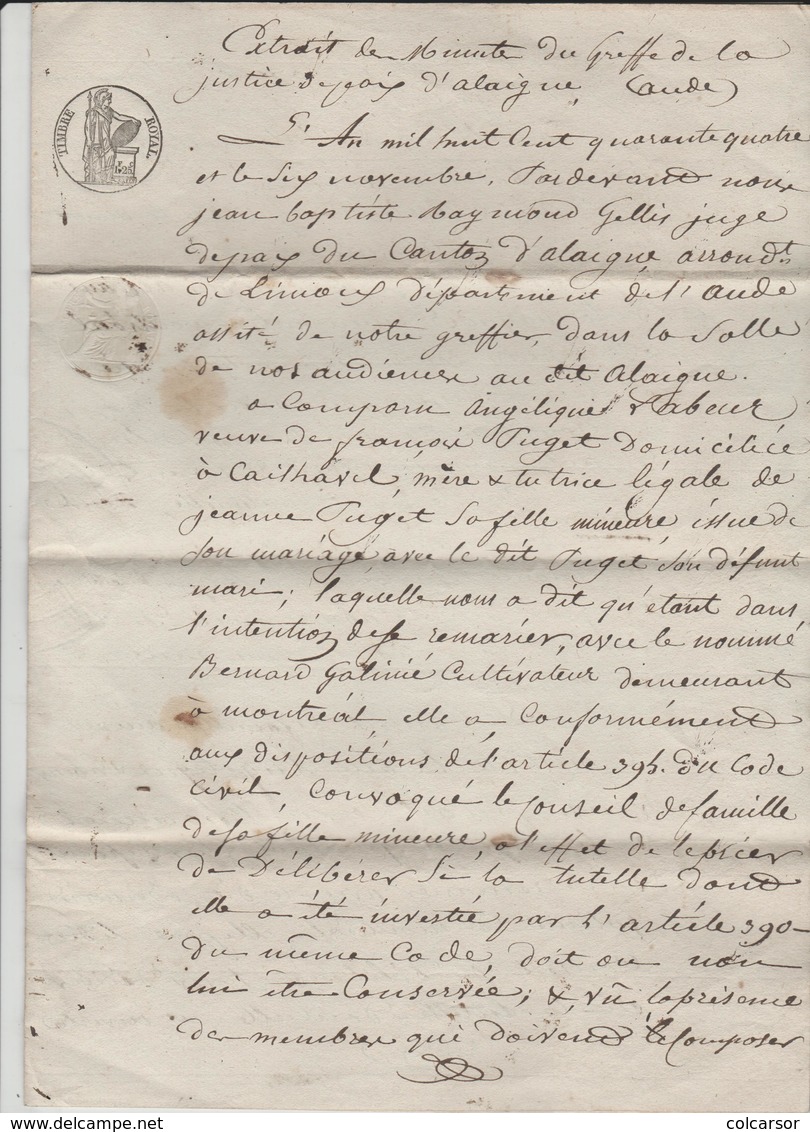 Extrait des Minutes du Greffe de la
justice de paix d'alaigne (aude)
TIMBRE ROYAL
1F 25C
L'An mil huit Cent quarante quatre
et le six novembre, Pardevant nous
jean baptiste Raymond Gellis juge
de paix du Canton d'alaigne arrondt
de Limoux département de l'aude
assité de notre greffier, dans la Salle
de nos audiences au dit Alaigne.
a Comparu Angélique
veuve de françois Puget Domiciliée
à Cailhavel, mère & tutrice légale de
jeanne Puget Sa fille mineure, issue de
son mariage, avec le dit Puget, Son défunt
mari; laquelle nous a dit qu'étant dans
l'intention de se remarier, avec le nommé
Bernard Galinié Cultivateur demeurant
à montréal elle a Conformément
aux dispositions de l'article 395. du Code
Civil, Convoqué le Conseil de famille
de Sa fille mineure, a l'effet de le prier
de Délibérer Si la tutelle dont
elle a été investie par l'article 390
du même Code, doit ou non
lui être Conservée; & vû la présence
des membres qui doivent le Composer
colcarsor